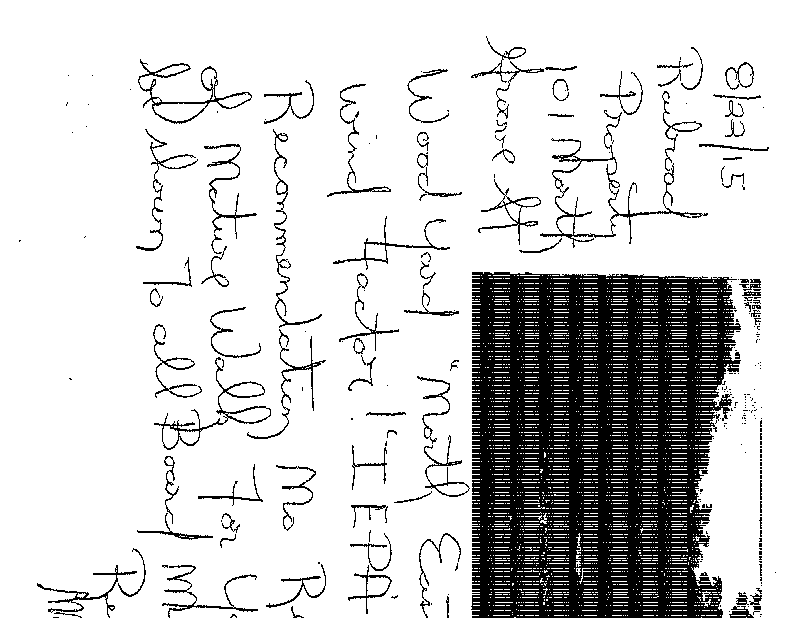 8/22/15
Railroad
Property
101 North
Grove St,
Wood Yard "North Eas
Wind Factor! "IEPA
Recommendation No Re
of Nature For
be shown To all Board M
Re